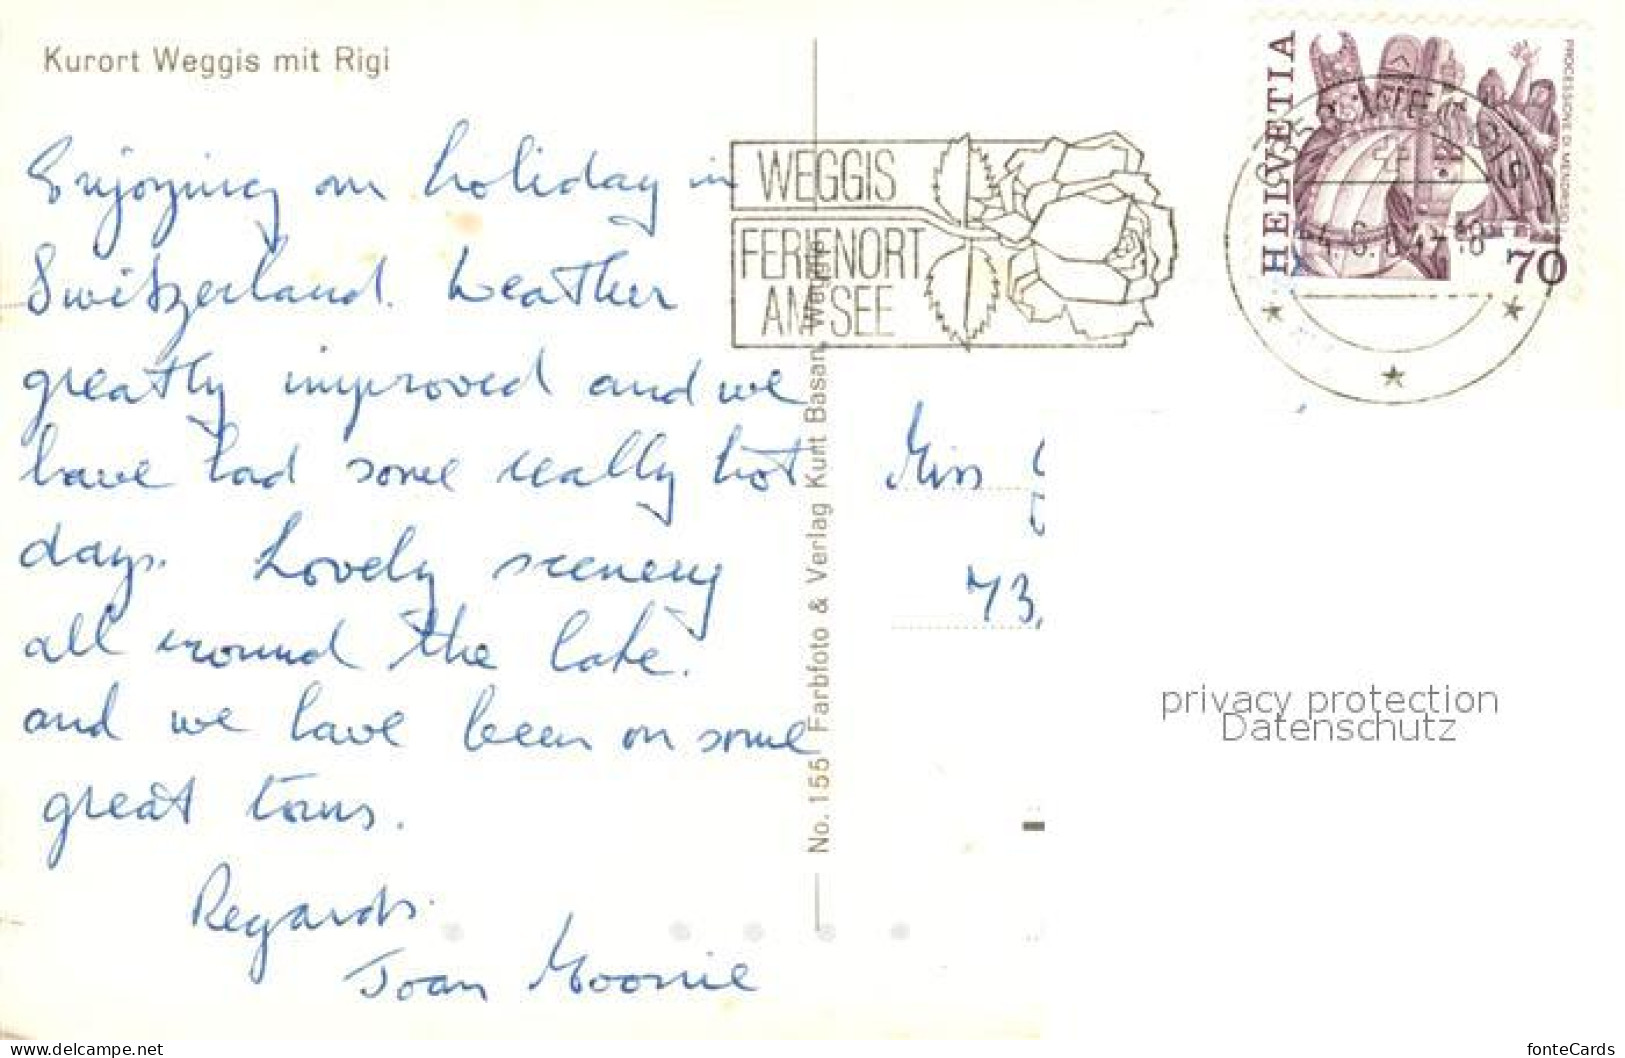 Kurort Weggis mit Rigi
Enjoying our holiday in
Switzerland. Weather
greatly improved and we
have had some really hot
days. Lovely scenery
all round the lake.
and we have been on some
great tours.
Regards
Joan Moonie
WEGGIS
FERIENORT
AM SEE
No. 155 Farbfoto & Verlag Kurt Basan, Weggis
HELVETIA
PROCESSIONE DI MENDRISIO
70
WEGGIS
Miss
73,
privacy protection
Datenschutz
www.delcampe.net
fonteCards